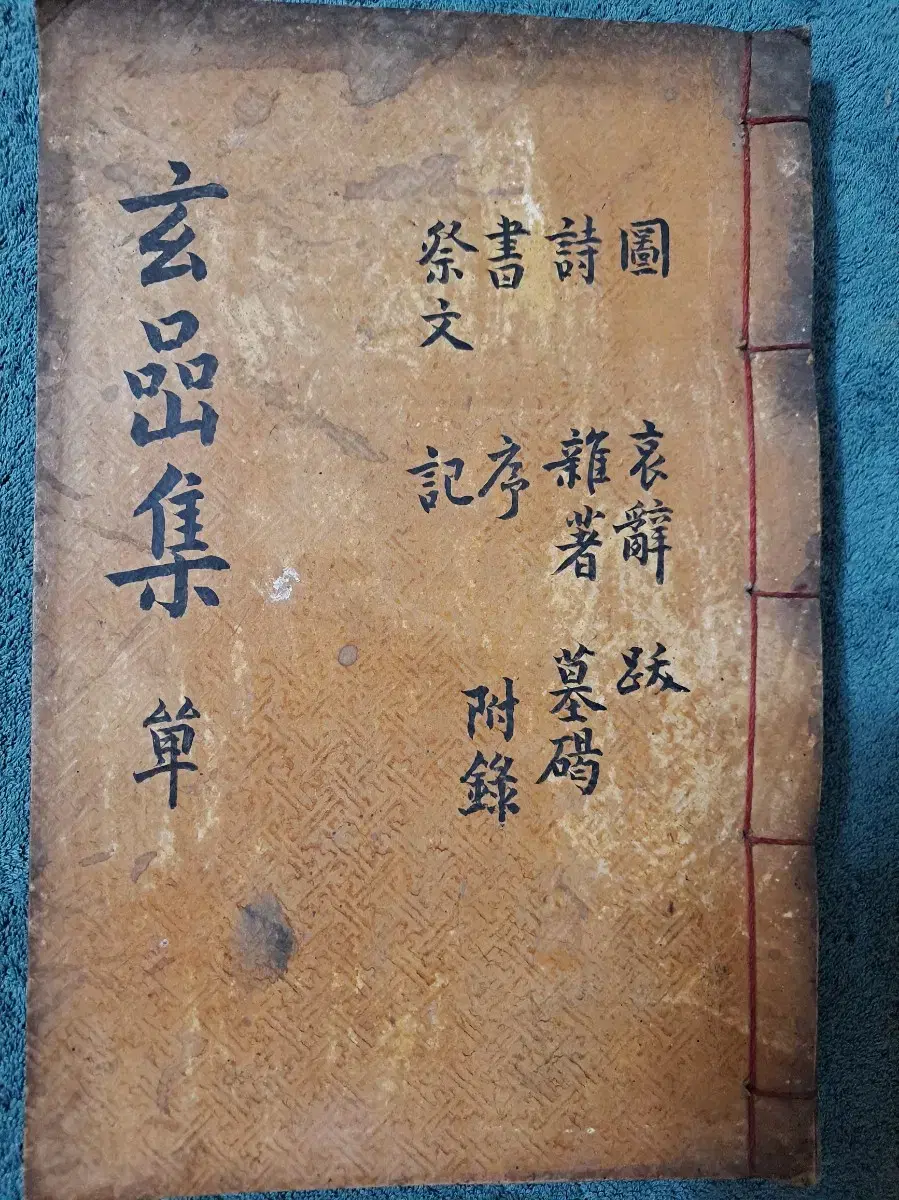 圖 哀辭 跋
詩 雜著 墓碣
書 序 附錄
祭文 記
玄嵒集 單